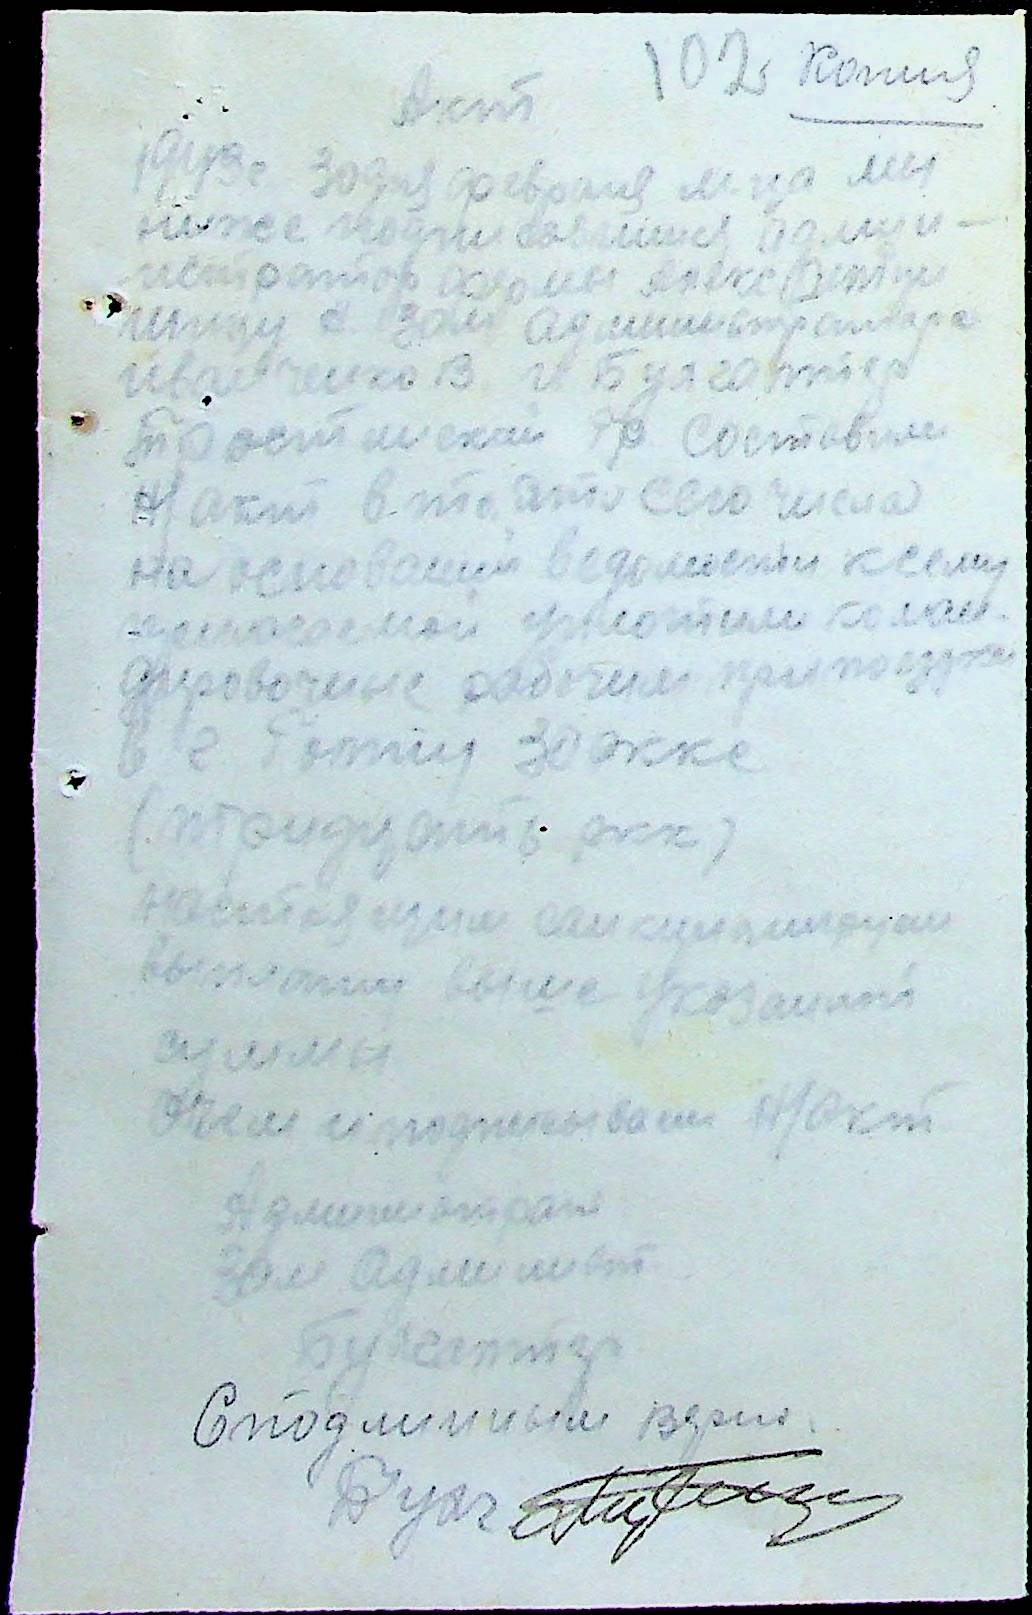 102 Копия
Акт
1943 г 30 дня февраля м-ца мы
ниже подписавшиеся админи-
истратор
зам администратора
Иванченко В. и Бухгалтер
составили
н/акт в том что сего числа
на основании ведомости к сему
прилагаемой уплотили коман-
дировочные рабочим при поездки
в г 30 окке
(тридцать окк)
настоящим санкционируем
выплату выше указанной
суммы
О чем и подписываем н/акт
Администрат
Зам Админист
Бухгалтер
С подлинным верно.
Бухг